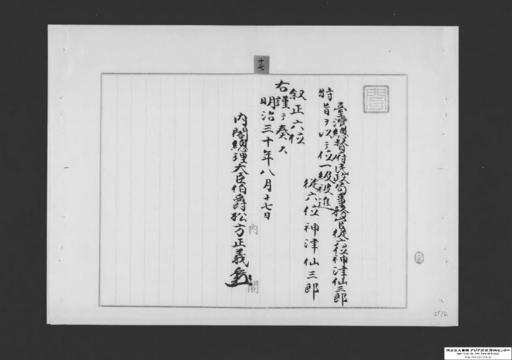 十七
臺灣總督府民政局事務官從六位神津仙三郎
特旨ヲ以テ位一級被進
從六位 神津仙三郎
叙正六位
右謹テ奏ス
明治三十年八月十七日
內閣總理大臣伯爵松方正義
內
閣